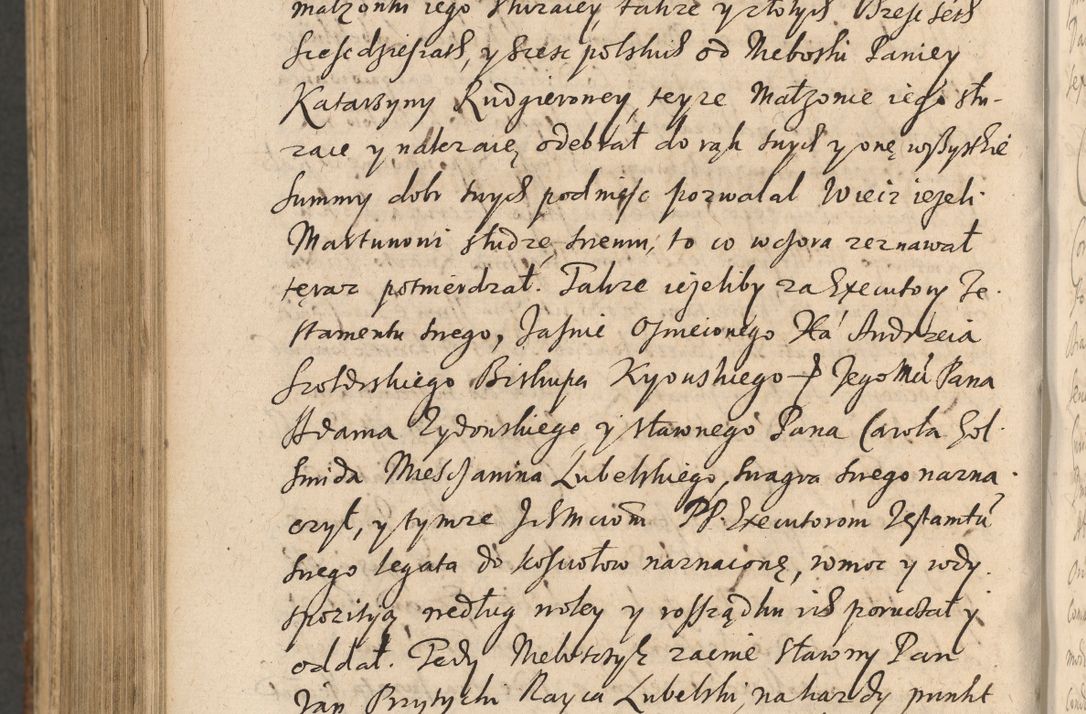 małzonki iego służaicey, także y złotych Sześć set
sześćdziesiąt, y sześć polskich od Nieboski Paniey
Katarzyny Rudgierowey teyze Małzonce iego słu-
żące y należące odebrał do rąk swych y onę wszystkie
Summy dobr swych podnieść pozwalał Więc ieżeli
Marcinowi słudze swemu, to co wczora zeznawał
teraz potwierdzał. Także ieżeliby za Executory Te-
stamentu swego, Jaśnie Oświeconego Xa Andrzeia
Szołdrskiego Biskupa Kyowskiego Jego Mci Pana
Adama Żydowskiego y sławnego Pana Carola Gol-
smida Mieszczanina Lubelskiego, swagra swego nazna-
czył, y tymze Ich Mciom PP. Executorom Testamtu
swego legata do kosciołow naznaczone, w moc y w dy-
spozitią według woley y rosządku ich poruczał y
oddał. Tedy Nieboszczyk zacnie Sławny Pan
Jan Przytycki Rayca Lubelski, na kazdy punkt